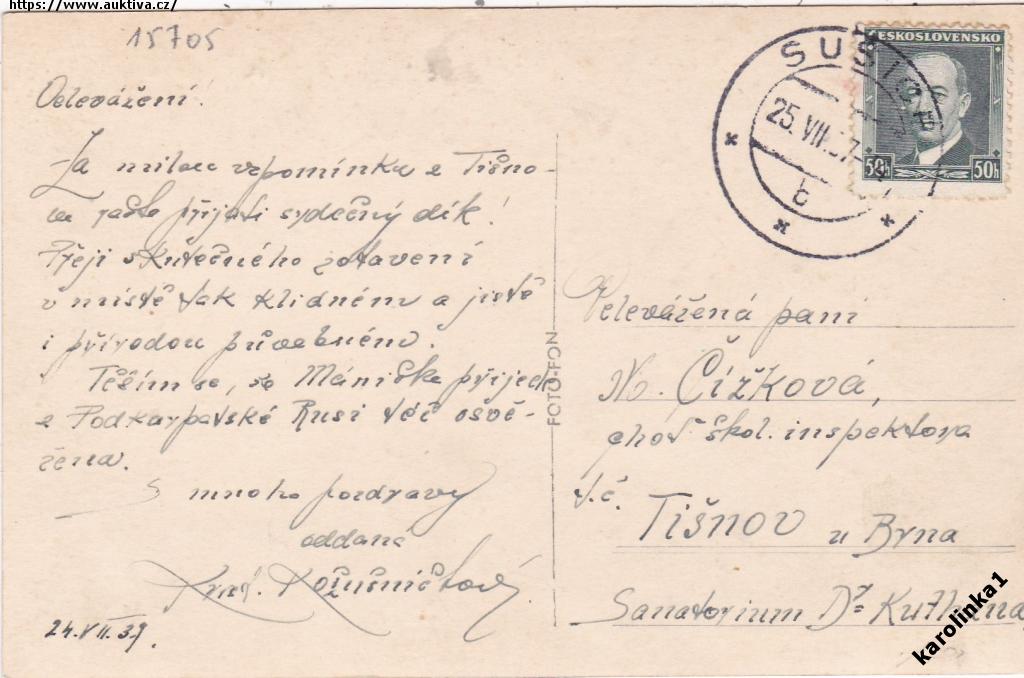 https://www.auktiva.cz/
15705
Velevážení.
Za milou vzpomínku z Tišno-
va račte přijati srdečný dík!
Přeji skutečného zotavení
v místě tak klidném a jistě
i přírodou půvabném.
Těším se, že Mániška přijede
z Podkarpatské Rusi též osvě-
žena.
S mnoha pozdravy
oddaná
24.VII.37.
FOTO-FON
SUŠICE
25.VII.37
b
ČESKOSLOVENSKO
50h 50h
Velevážená paní
Čížková,
choť škol. inspektora
t.č.
Tišnov u Brna
Sanatorium Dra Kuthana
karolinka1